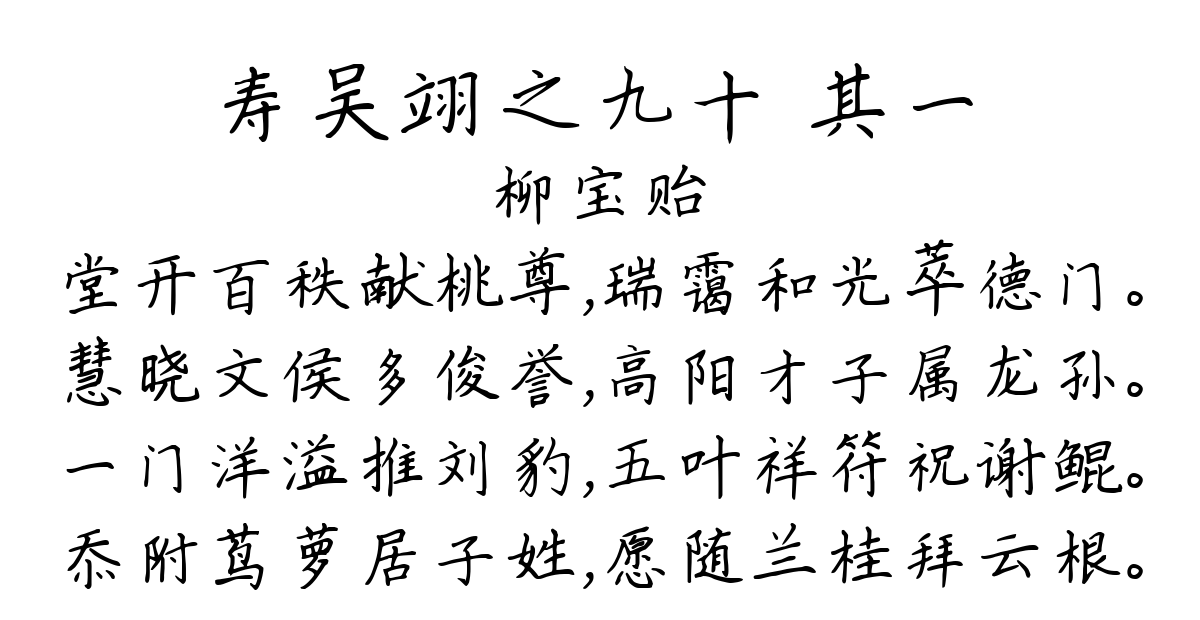 寿吴翊之九十 其一
柳宝贻
堂开百秩献桃尊,瑞霭和光萃德门。
慧晓文侯多俊誉,高阳才子属龙孙。
一门洋溢推刘豹,五叶祥符祝谢鲲。
忝附茑萝居子姓,愿随兰桂拜云根。